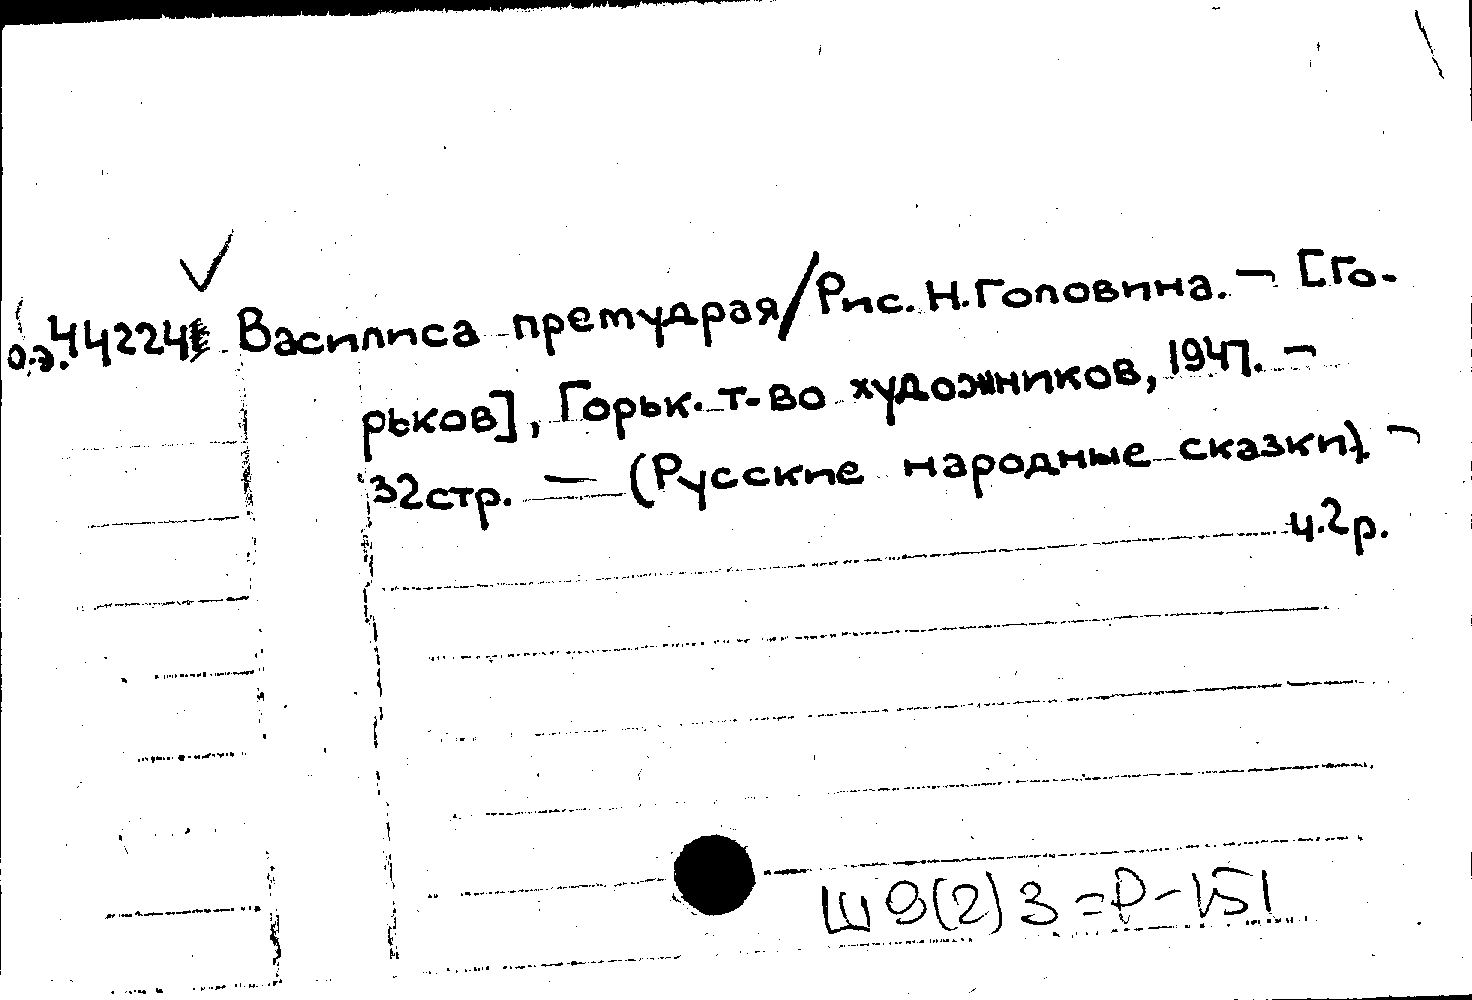 о.э. 44224 Василиса премудрая/Рис. Н. Головина. – [Го-
рьков], Горьк. т-во художников, 1947. –
32стр. – (Русские народные сказки). –
ц. 2р.
Ш9(2)3=Р-151